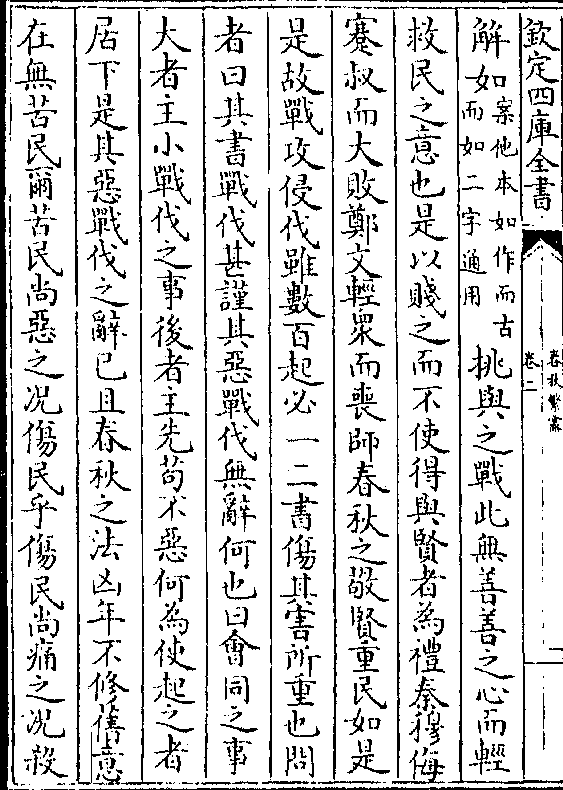 欽定四庫全書
春秋繁露
卷二
解如案他本如作而古
而如二字通用挑與之戰此無善善之心而輕
救民之意也是以賤之而不使得與賢者為禮秦穆侮
蹇叔而大敗鄭文輕衆而喪師春秋之敬賢重民如是
是故戰攻侵伐雖數百起必一二書傷其害所重也問
者曰其書戰伐甚謹其惡戰伐無辭何也曰會同之事
大者主小戰伐之事後者主先苟不惡何為使起之者
居下是其惡戰伐之辭已且春秋之法凶年不修舊意
在無苦民爾苦民尚惡之况傷民乎傷民尚痛之况殺